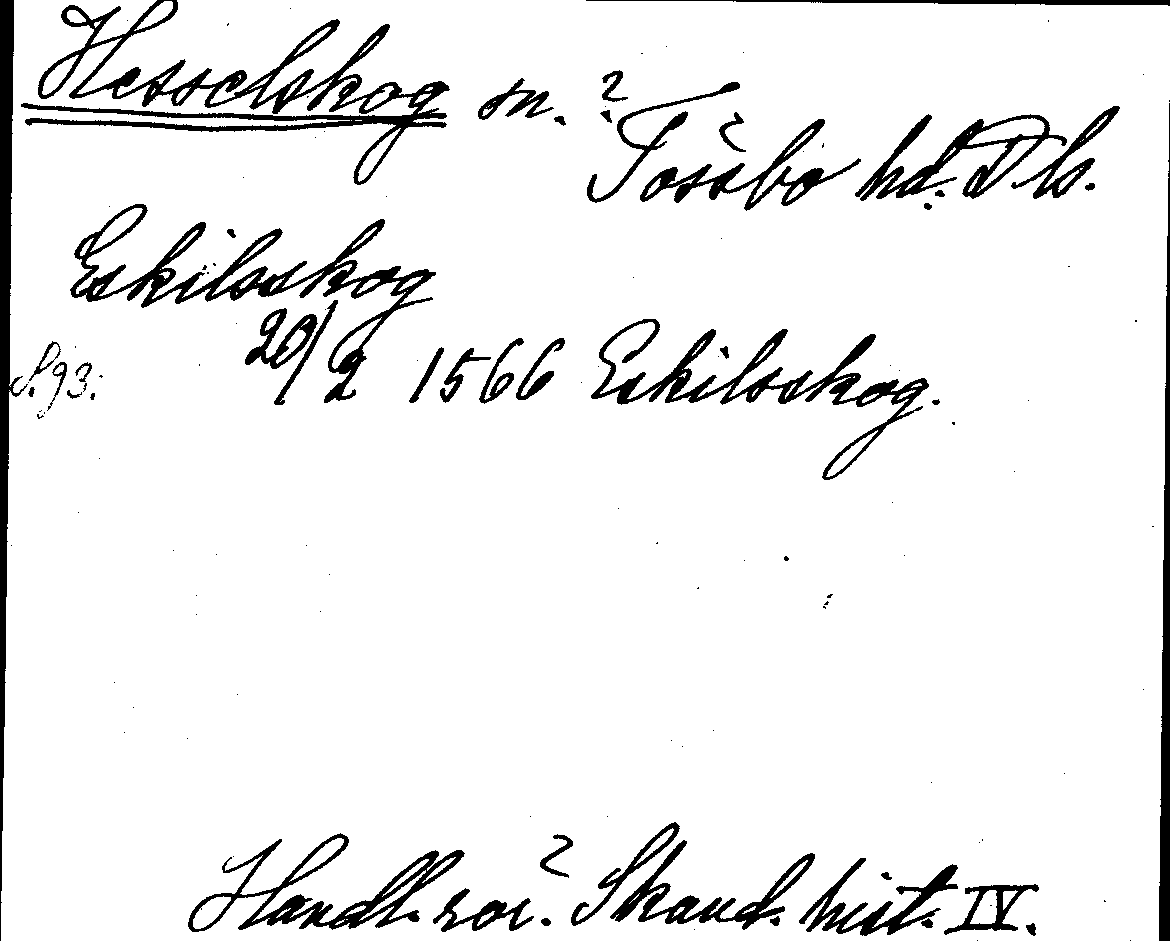 Hesselskog sn.
Tössbo hd. Dls.
Eskilsskog
S. 93: 20/2 1566 Eskilsskog.
Handl. rör. Skand. hist. IV.